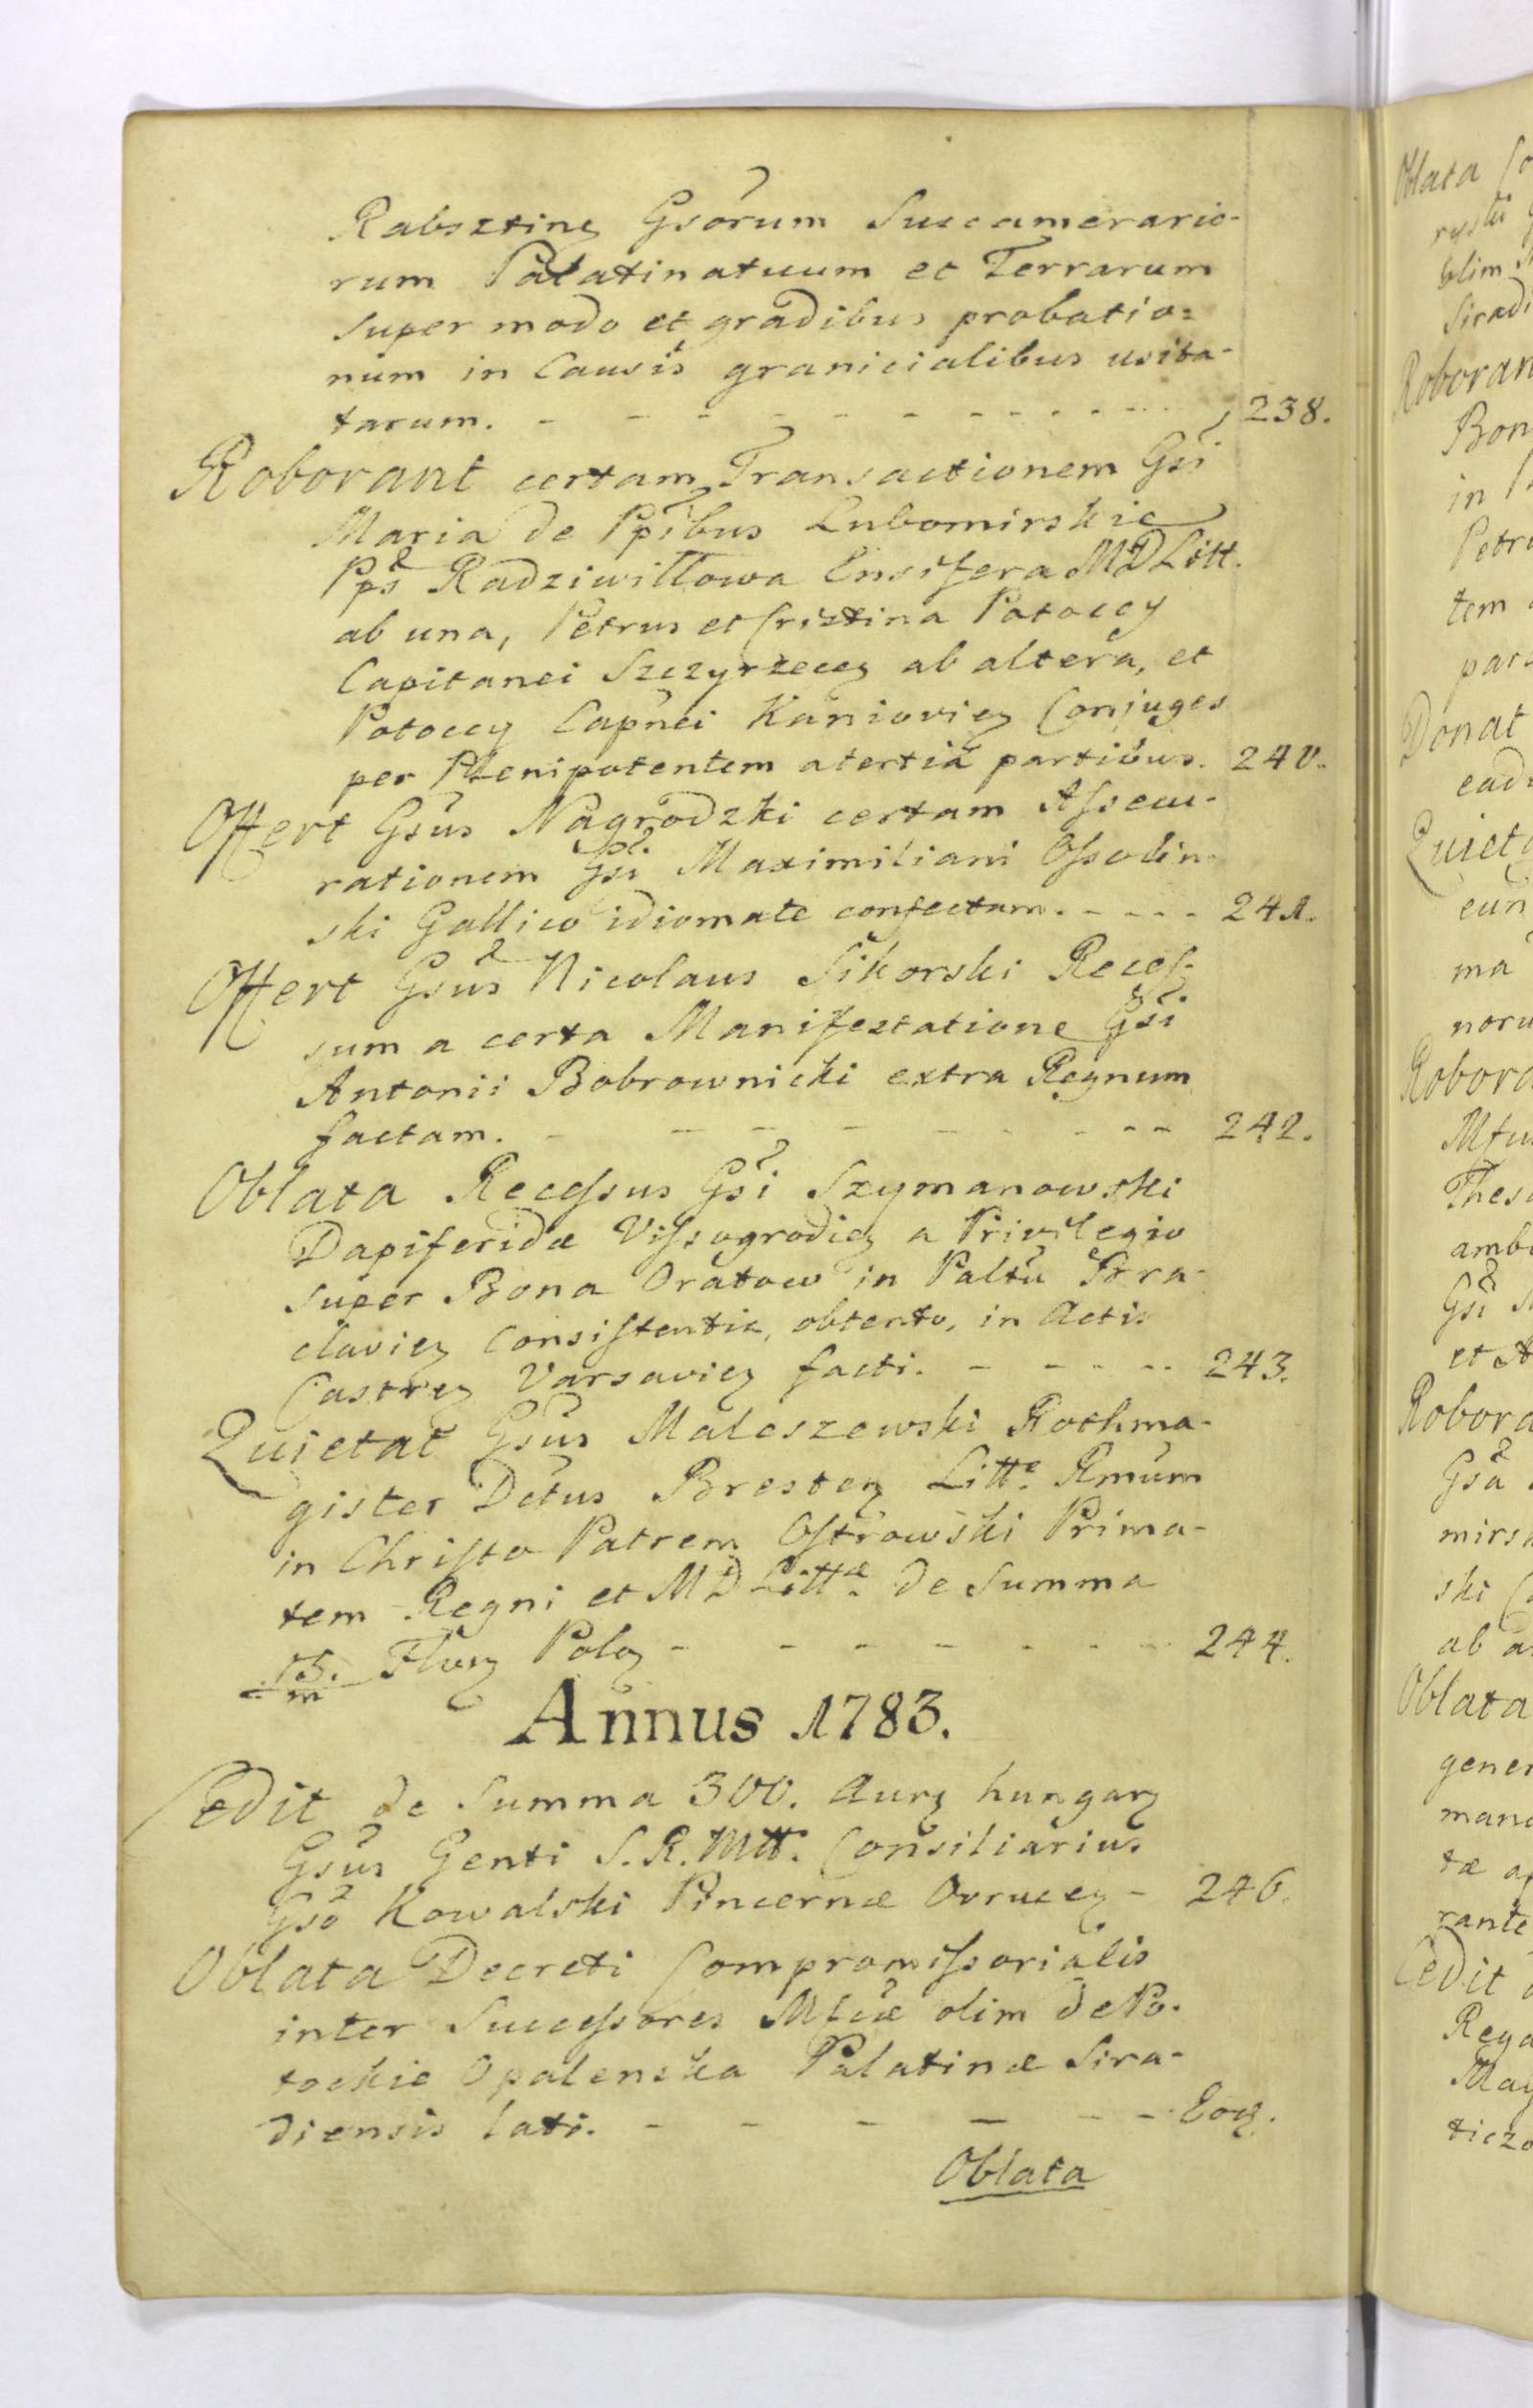 Rabsztinz Gsorum Succamerario-
rum Palatinatuum et Terrarum
super modo et gradibus probatio=
num in Causis granicialibus usita-
tarum. - - - - - - - - - - 238.
Roborant certam Transactionem Gsi
Maria de Ppibus Lubomirskie
Pps Radziwiłłowa Ensifera MDLitt.
ab una, Petrus et Cristina Potoccy
Capitanei Szczyrzecez ab altera, et
Potoccy Capnei Kaniovicz Conjuges
per Plenipotentem atertia partibus. 240.
Offert Gsus Nagrodzki certam Assecu-
rationem Gsi Maximiliani Ossolin-
ski Gallico idiomate confectam. - - - - 241.
Offert Gsus Nicolaus Sikorski Reces-
sum a certa Manifestatione Gsi
Antonii Bobrownicki extra Regnum
factam. - - - - - - - - - 242.
Oblata Recessus Gsi Szymanowski
Dapiferidæ Vissogrodiez a Privilegio
super Bona Oratow in Paltu Bra-
claviez Consistentia, obtento, in Actis
Castrez Varsaviez facti. - - - - - 243.
Quietat Gsus Maleszewski Rothma-
gister Dctus Brestez Litte. Rmum
in Christo Patrem Ostrowski Prima-
tem Regni et MD Littæ. de Summa
15/m. Fluz Polz - - - - - - - 244.
Annus 1783.
Cedit de Summa 300. Aurz hungarz
Gsus Genti S.R.Mtt. Consiliarius
Gso Kowalski Pincernæ Ovrucez - 246.
Oblata Decreti Compromissorialis
inter Successores Mfcæ olim de Po-
tockie Opalenska Palatinæ Sira-
diensis lati. - - - - - - Eoz.
Oblata
Oblata
olim
Roboran
in
Petr
tem
Donat
ead
Quiet
eun
ma
noru
Mfu
Thes
amb
Gsi
Gsa
mirs
ski
Oblata
gener
mand
tæ
rante
Cedit
Rega
Mag